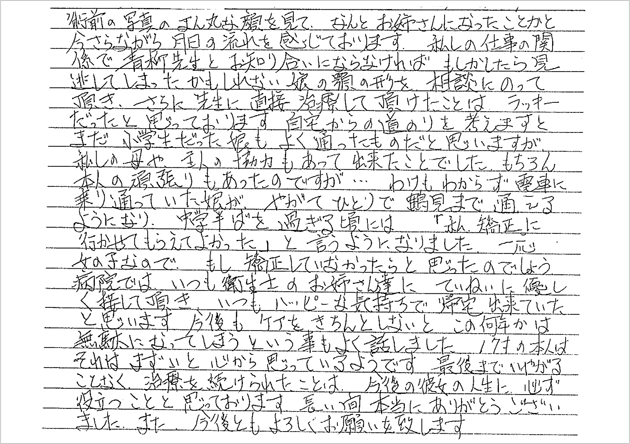 術前の写真のまん丸な顔を見て、なんとお姉さんになったことかと
今さらながら月日の流れを感じております。私しの仕事の関
係で青柳先生とお知り合いにならなければもしかしたら見
逃してしまったかもしれない娘の顎の形を相談にのって
頂き、さらに先生に直接治療して頂けたことはラッキー
だったと思っております。自宅からの道のりを考えますと
まだ小学生だった娘もよく通ったものだと思いますが
私しの母や主人の協力もあって出来たことでした。もちろん
本人の頑張りもあったのですが…わけもわからず電車に
乗り通っていた娘が、やがてひとりで鶴見まで通える
ようになり、中学半ばを過ぎる頃には「私、矯正に
行かせてもらえてよかった」と言うようになりました。一応
女の子なので、もし矯正していなかったらと思ったのでしょう
病院ではいつも衛生士のお姉さん達にていねいに優し
く接して頂き、いつもハッピーな気持ちで帰宅出来ていた
と思います。今後もケアをきちんとしないとこの何年かは
無駄になってしまうという事もよく話しました。17才の本人は
それはまずいと心から思っているようです。最後までいやがる
ことなく治療を続けられたことは、今後の彼女の人生に必ず
役立つことと思っております。長い間本当にありがとうござい
ました。また、今後ともよろしくお願いを致します。